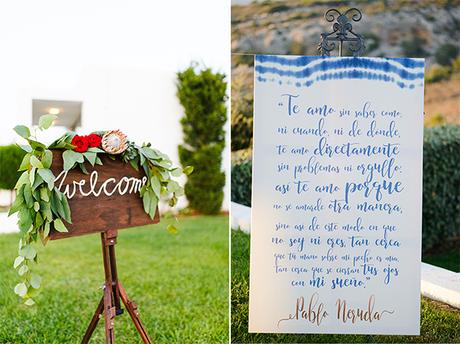 welcome
"Te amo sin saber como,
ni cuando, ni de donde,
te amo directamente
sin problemas ni orgullo:
asi te amo porque
no se amarde otra manera,
sino asi de este modo en que
no soy ni eres, tan cerca
que tu mano sobre mi pecho es mia,
tan cerca que se cierran tus ojos
con mi sueño."
Pablo Neruda